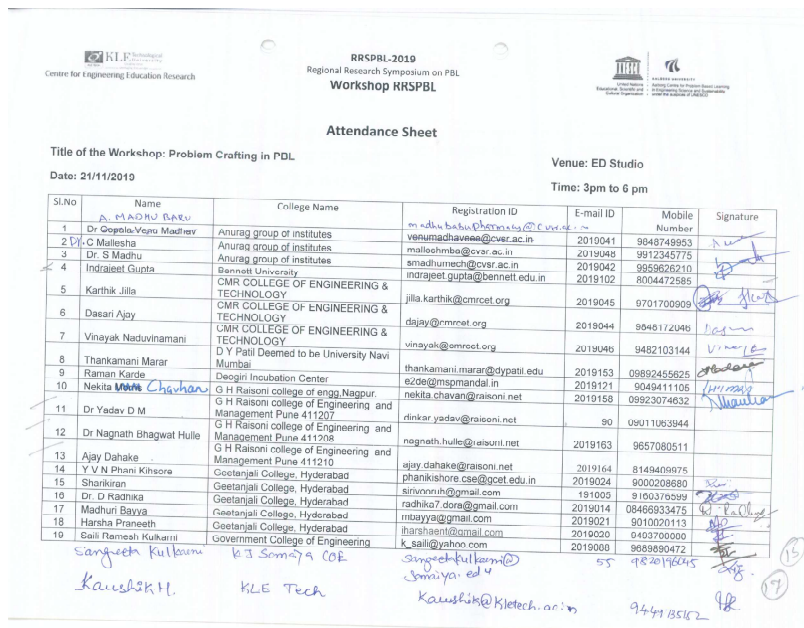 KLE Technological
Centre for Engineering Education Research
RRSPBL-2019
Regional Research Symposium on PBL
Workshop RRSPBL
United Nations
Educational, Scientific and
Cultural Organization
AALBORG UNIVERSITY
Aalborg Centre for Problem Based Learning
in Engineering Science and Sustainability
under the auspices of UNESCO
Attendance Sheet
Title of the Workshop: Problem Crafting in PBL
Venue: ED Studio
Date: 21/11/2019
Time: 3pm to 6 pm
Sl.No Name College Name Registration ID E-mail ID Mobile Number Signature
A. MADHU BABU madhubabupharmacy@cvsr.ac.in
1 Dr Gopala Vara Madhav Anurag group of institutes venumadhavaaa@cvsr.ac.in 2019041 9848749953
2 Dr. C Mallesha Anurag group of institutes malleshmba@cvsr.ac.in 2019048 9912345775
3 Dr. S Madhu Anurag group of institutes smadhumech@cvsr.ac.in 2019042 9959626210
4 Indrajeet Gupta Bennett University indrajeet.gupta@bennett.edu.in 2019102 8004472585
5 Karthik Jilla CMR COLLEGE OF ENGINEERING & TECHNOLOGY jilla.karthik@cmrcet.org 2019045 9701700909
6 Dasari Ajay CMR COLLEGE OF ENGINEERING & TECHNOLOGY dajay@cmrcet.org 2019044 9848172046
7 Vinayak Naduvinamani CMR COLLEGE OF ENGINEERING & TECHNOLOGY vinayak@cmrcet.org 2019046 9482103144
8 Thankamani Marar D Y Patil Deemed to be University Navi Mumbai thankamani.marar@dypatil.edu 2019153 09892455625
9 Raman Karde Deogiri Incubation Center e2de@mspmandal.in 2019121 9049411105
10 Nekita Chavhan G H Raisoni college of engg,Nagpur. nekita.chavan@raisoni.net 2019158 09923074632
11 Dr Yadav D M G H Raisoni college of Engineering and Management Pune 411207 dinkar.yadav@raisoni.net 90 09011063944
12 Dr Nagnath Bhagwat Hulle G H Raisoni college of Engineering and Management Pune 411208 nagnath.hulle@raisoni.net 2019163 9657080511
13 Ajay Dahake G H Raisoni college of Engineering and Management Pune 411210 ajay.dahake@raisoni.net 2019164 8149409975
14 Y V N Phani Kihsore Geetanjali College, Hyderabad phanikishore.cse@gcet.edu.in 2019024 9000208680
15 Sharikiran Geetanjali College, Hyderabad 191005 9160376599
16 Dr. D Radhika Geetanjali College, Hyderabad radhika7.dora@gmail.com 2019014 08466933475
17 Madhuri Bayya Geetanjali College, Hyderabad mbayya@gmail.com 2019021 9010020113
18 Harsha Praneeth Geetanjali College, Hyderabad iharshaent@gmail.com 2019020 9493700000
19 Saili Ramesh Kulkarni Government College of Engineering k_saili@yahoo.com 2019080 9689690472
Sangeeta Kulkarni KJ Somaiya COE sangeetakulkarni@somaiya.edu 55 9820196045
15
Kaushik M. KLE Tech Kaushik@kletech.ac.in 9449135152
17